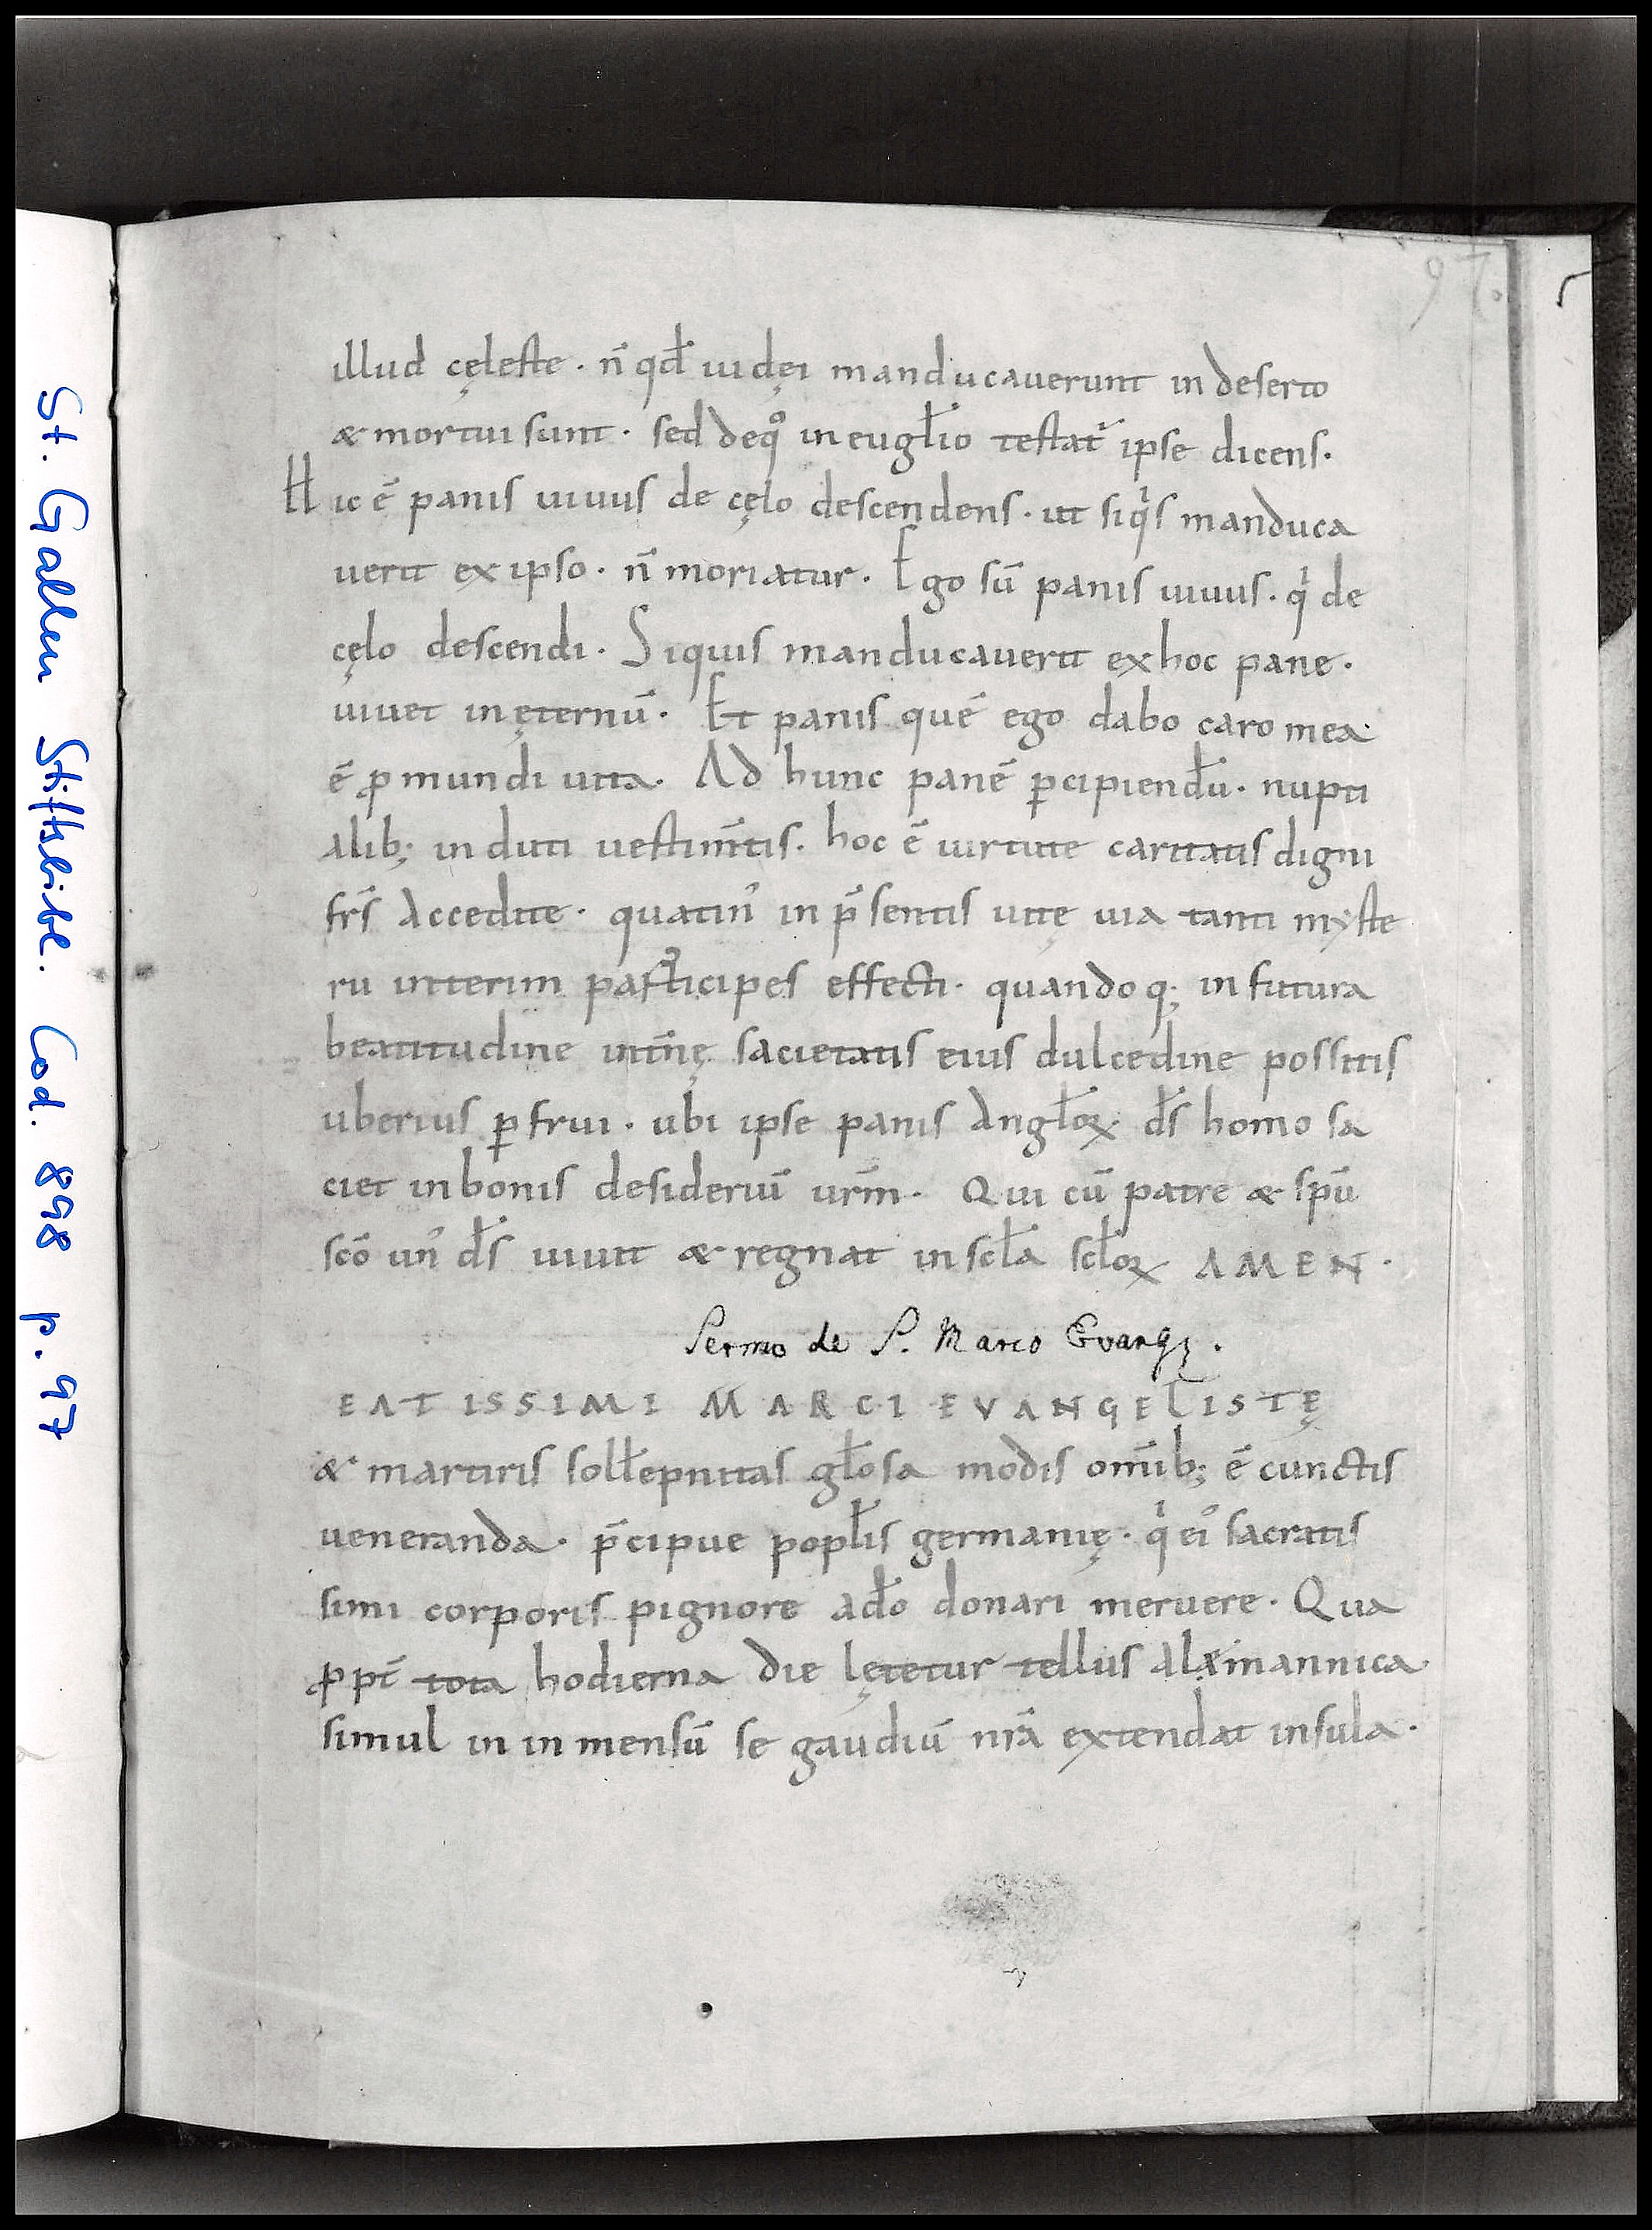 97.
illud cęleste · n̄ qd̄ iudęi manducauerunt in deserto
& mortui sunt · sed de q° in eugl̄io testat᷑ ipse dicens ·
Hic ē panis uiuus de cęlo descendens · ut siqͥs manduca
uerit ex ipso · n̄ moriatur · Ego sū panis uiuus · qͥ de
cęlo descendi · Siquis manducauerit ex hoc pane ·
uiuet in ęternū · Et panis quē ego dabo caro mea
ē ꝓ mundi uita · Ad hunc panē ꝑcipiend̄u · nupti
alib; induti uestim̄tis · hoc ē uirtute caritatis digni
fr̄s accedite · quatin᾽ in p̄sentis uitę uia tanti myste
rii interim participes effecti · quandoq; in futura
beatitudine int̄nę sacietatis eius dulcedine possitis
uberius ꝑfrui · ubi ipse panis angl̄oꝝ d̄s homo sa
ciet in bonis desideriū ur̄m · Qui cū patre & sp̄u
sc̄o un᾽ d̄s uiuit & regnat in scl̄a scl̄oꝝ AMEN ·
Sermo de S. Marco Evangę.
EATISSIMI MARCI EVANGELISTĘ
& martiris soll̄epnitas gl̄osa modis om̄ib; ē cunctis
ueneranda · p̄cipue popl̄is germanię · qͥ ei᾽ sacratis
simi corporis pignore ad̄o donari meruere · Qua
ꝓpt̄ tota hodierna die lętetur tellus alamannica
simul in inmensū se gaudiū nr̄a extendat insula ·
St. Gallen Stiftsbibl. Cod. 898 p. 97